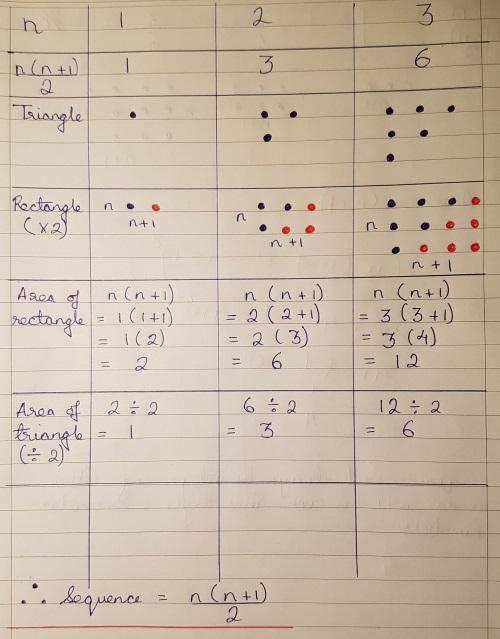 n 1 2 3
n(n+1)
2 1 3 6
Triangle
Rectangle n n n
(×2) n+1 n+1 n+1
Area of n(n+1) n(n+1) n(n+1)
rectangle = 1(1+1) = 2(2+1) = 3(3+1)
= 1(2) = 2(3) = 3(4)
= 2 = 6 = 12
Area of 2 ÷ 2 6 ÷ 2 12 ÷ 2
triangle = 1 = 3 = 6
(÷ 2)
∴ Sequence = n(n+1)
2